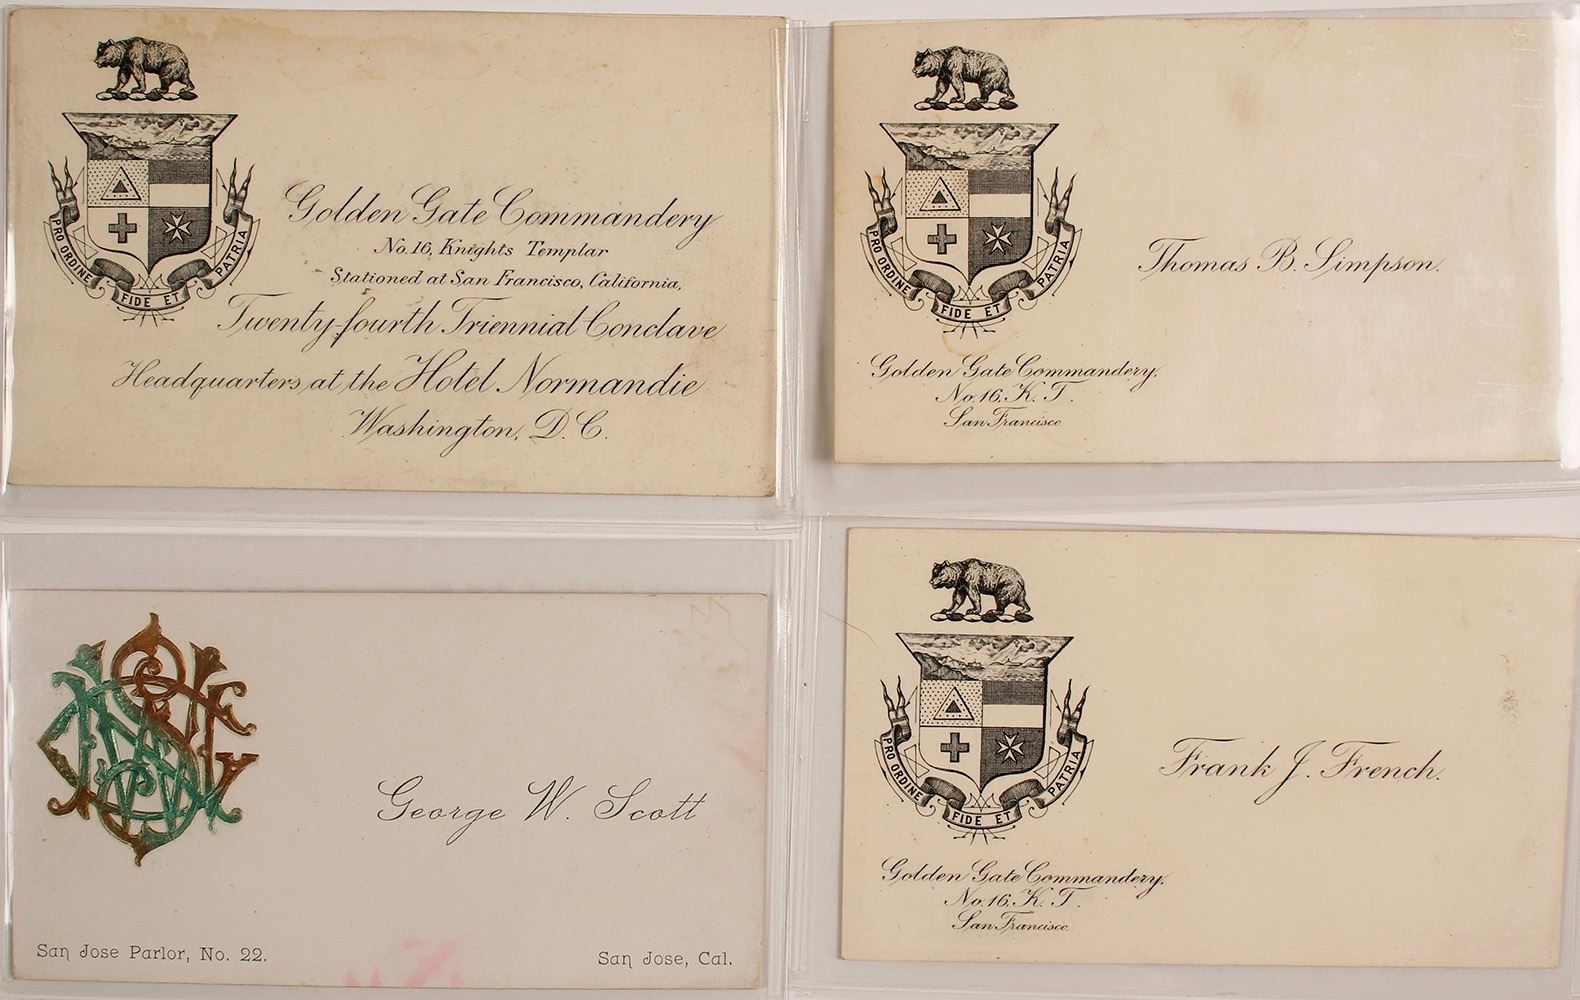 PRO ORDINE
FIDE ET
PATRIA
Golden Gate Commandery
No. 16, Knights Templar
Stationed at San Francisco, California,
Twenty-fourth Triennial Conclave
Headquarters at the Hotel Normandie
Washington, D. C.
PRO ORDINE
FIDE ET
PATRIA
Thomas B. Simpson.
Golden Gate Commandery.
No. 16. K. T.
San Francisco.
George W. Scott
San Jose Parlor, No. 22.
San Jose, Cal.
PRO ORDINE
FIDE ET
PATRIA
Frank J. French.
Golden Gate Commandery.
No. 16. K. T.
San Francisco.